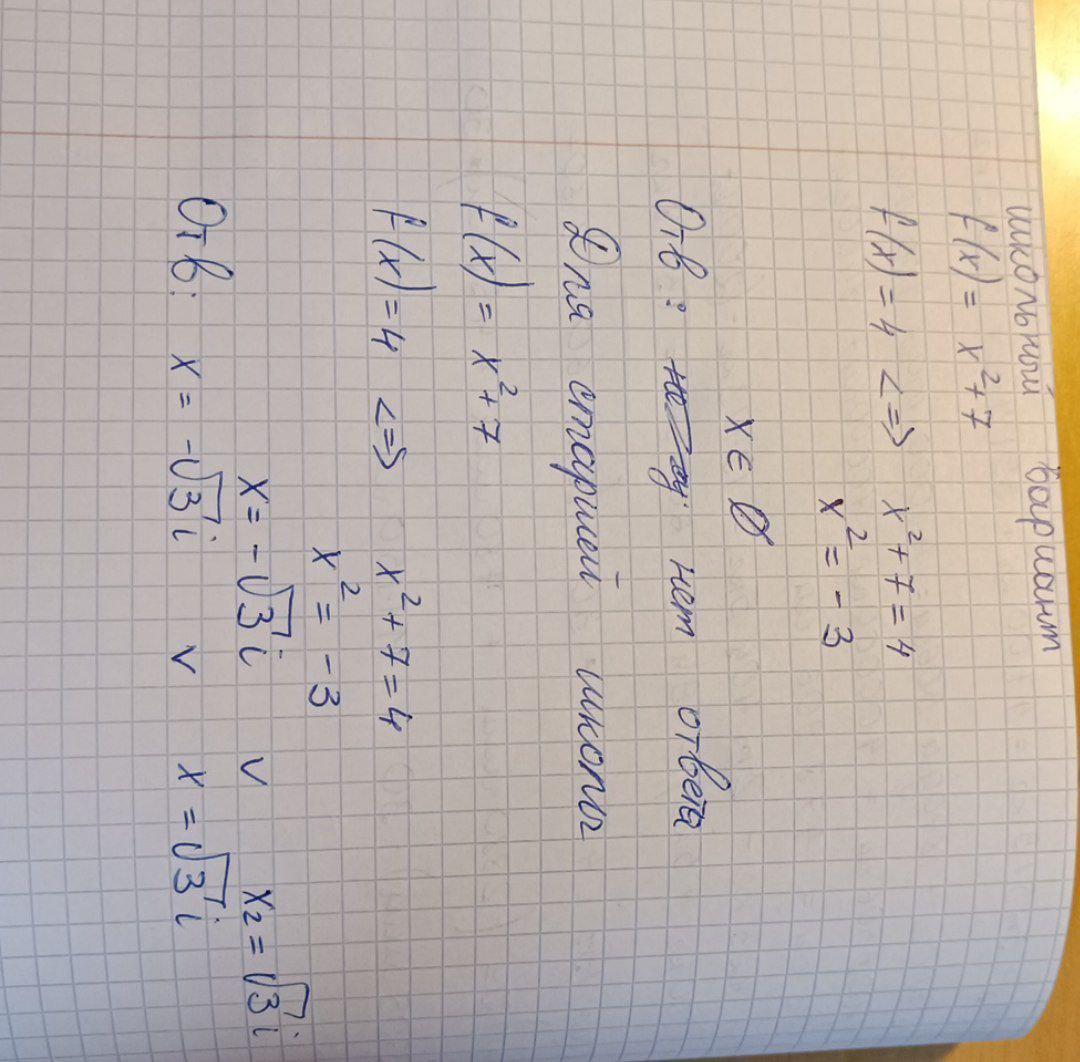 школьный вариант
f(x) = x² + 7
f(x) = 4 <=> x² + 7 = 4
x² = - 3
x ∈ ∅
Отв: нет ответа
Для старшей школы
f(x) = x² + 7
f(x) = 4 <=> x² + 7 = 4
x² = - 3
x = - √3 i v x₂ = √3 i
Отв: x = - √3 i v x = √3 i